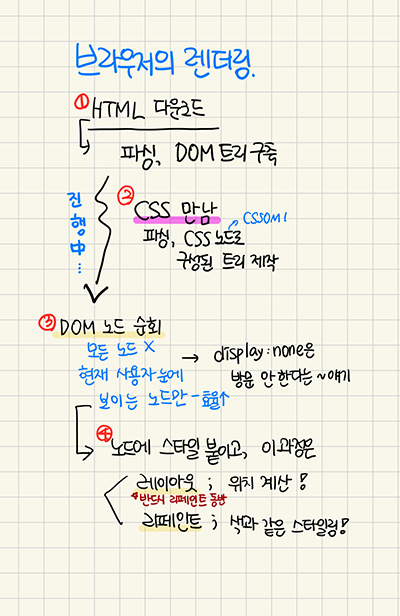 브라우저의 렌더링.
① HTML 다운로드
파싱, DOM 트리 구축
진행中...
② CSS 만남
파싱, CSS 노드로
CSSOM!
구성된 트리 제작
③ DOM 노드 순회
모든 노드 X
현재 사용자 눈에
보이는 노드만 - 효율↑
→ display:none은
방문 안한다는 ~얘기
④ 노드에 스타일 붙이고, 이 과정은
레이아웃 ; 위치 계산!
*반드시 리페인트 동반
리페인트 ; 색과 같은 스타일링!